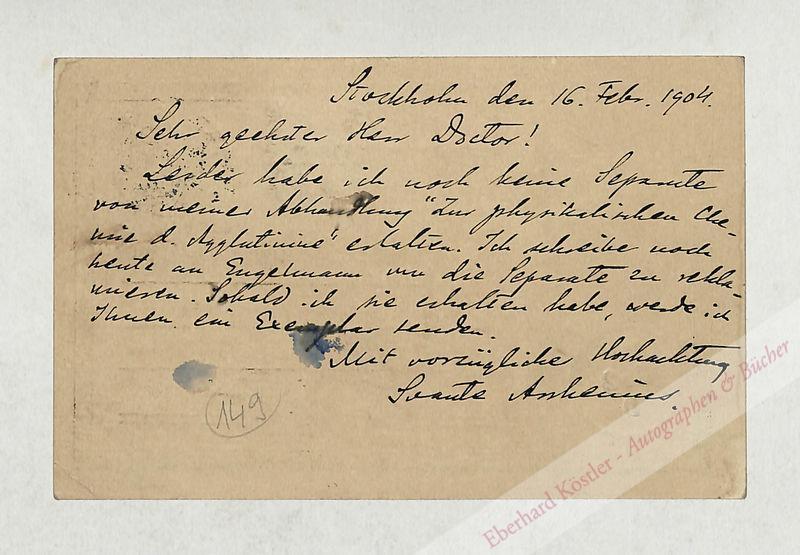 Stockholm den 16. Febr. 1904.
Sehr geehrter Herr Doctor!
Leider habe ich noch keine Separate
von meiner Abhandlung "Zur physikalischen Che-
mie d. Agglutinine" erhalten. Ich schreibe noch
heute an Engelmann um die Separate zu rekla-
mieren. Sobald ich sie erhalten habe, werde ich
Ihnen ein Exemplar senden.
Mit vorzügliche Hochachtung
Svante Arrhenius.
149
Eberhard Köstler - Autographen & Bücher